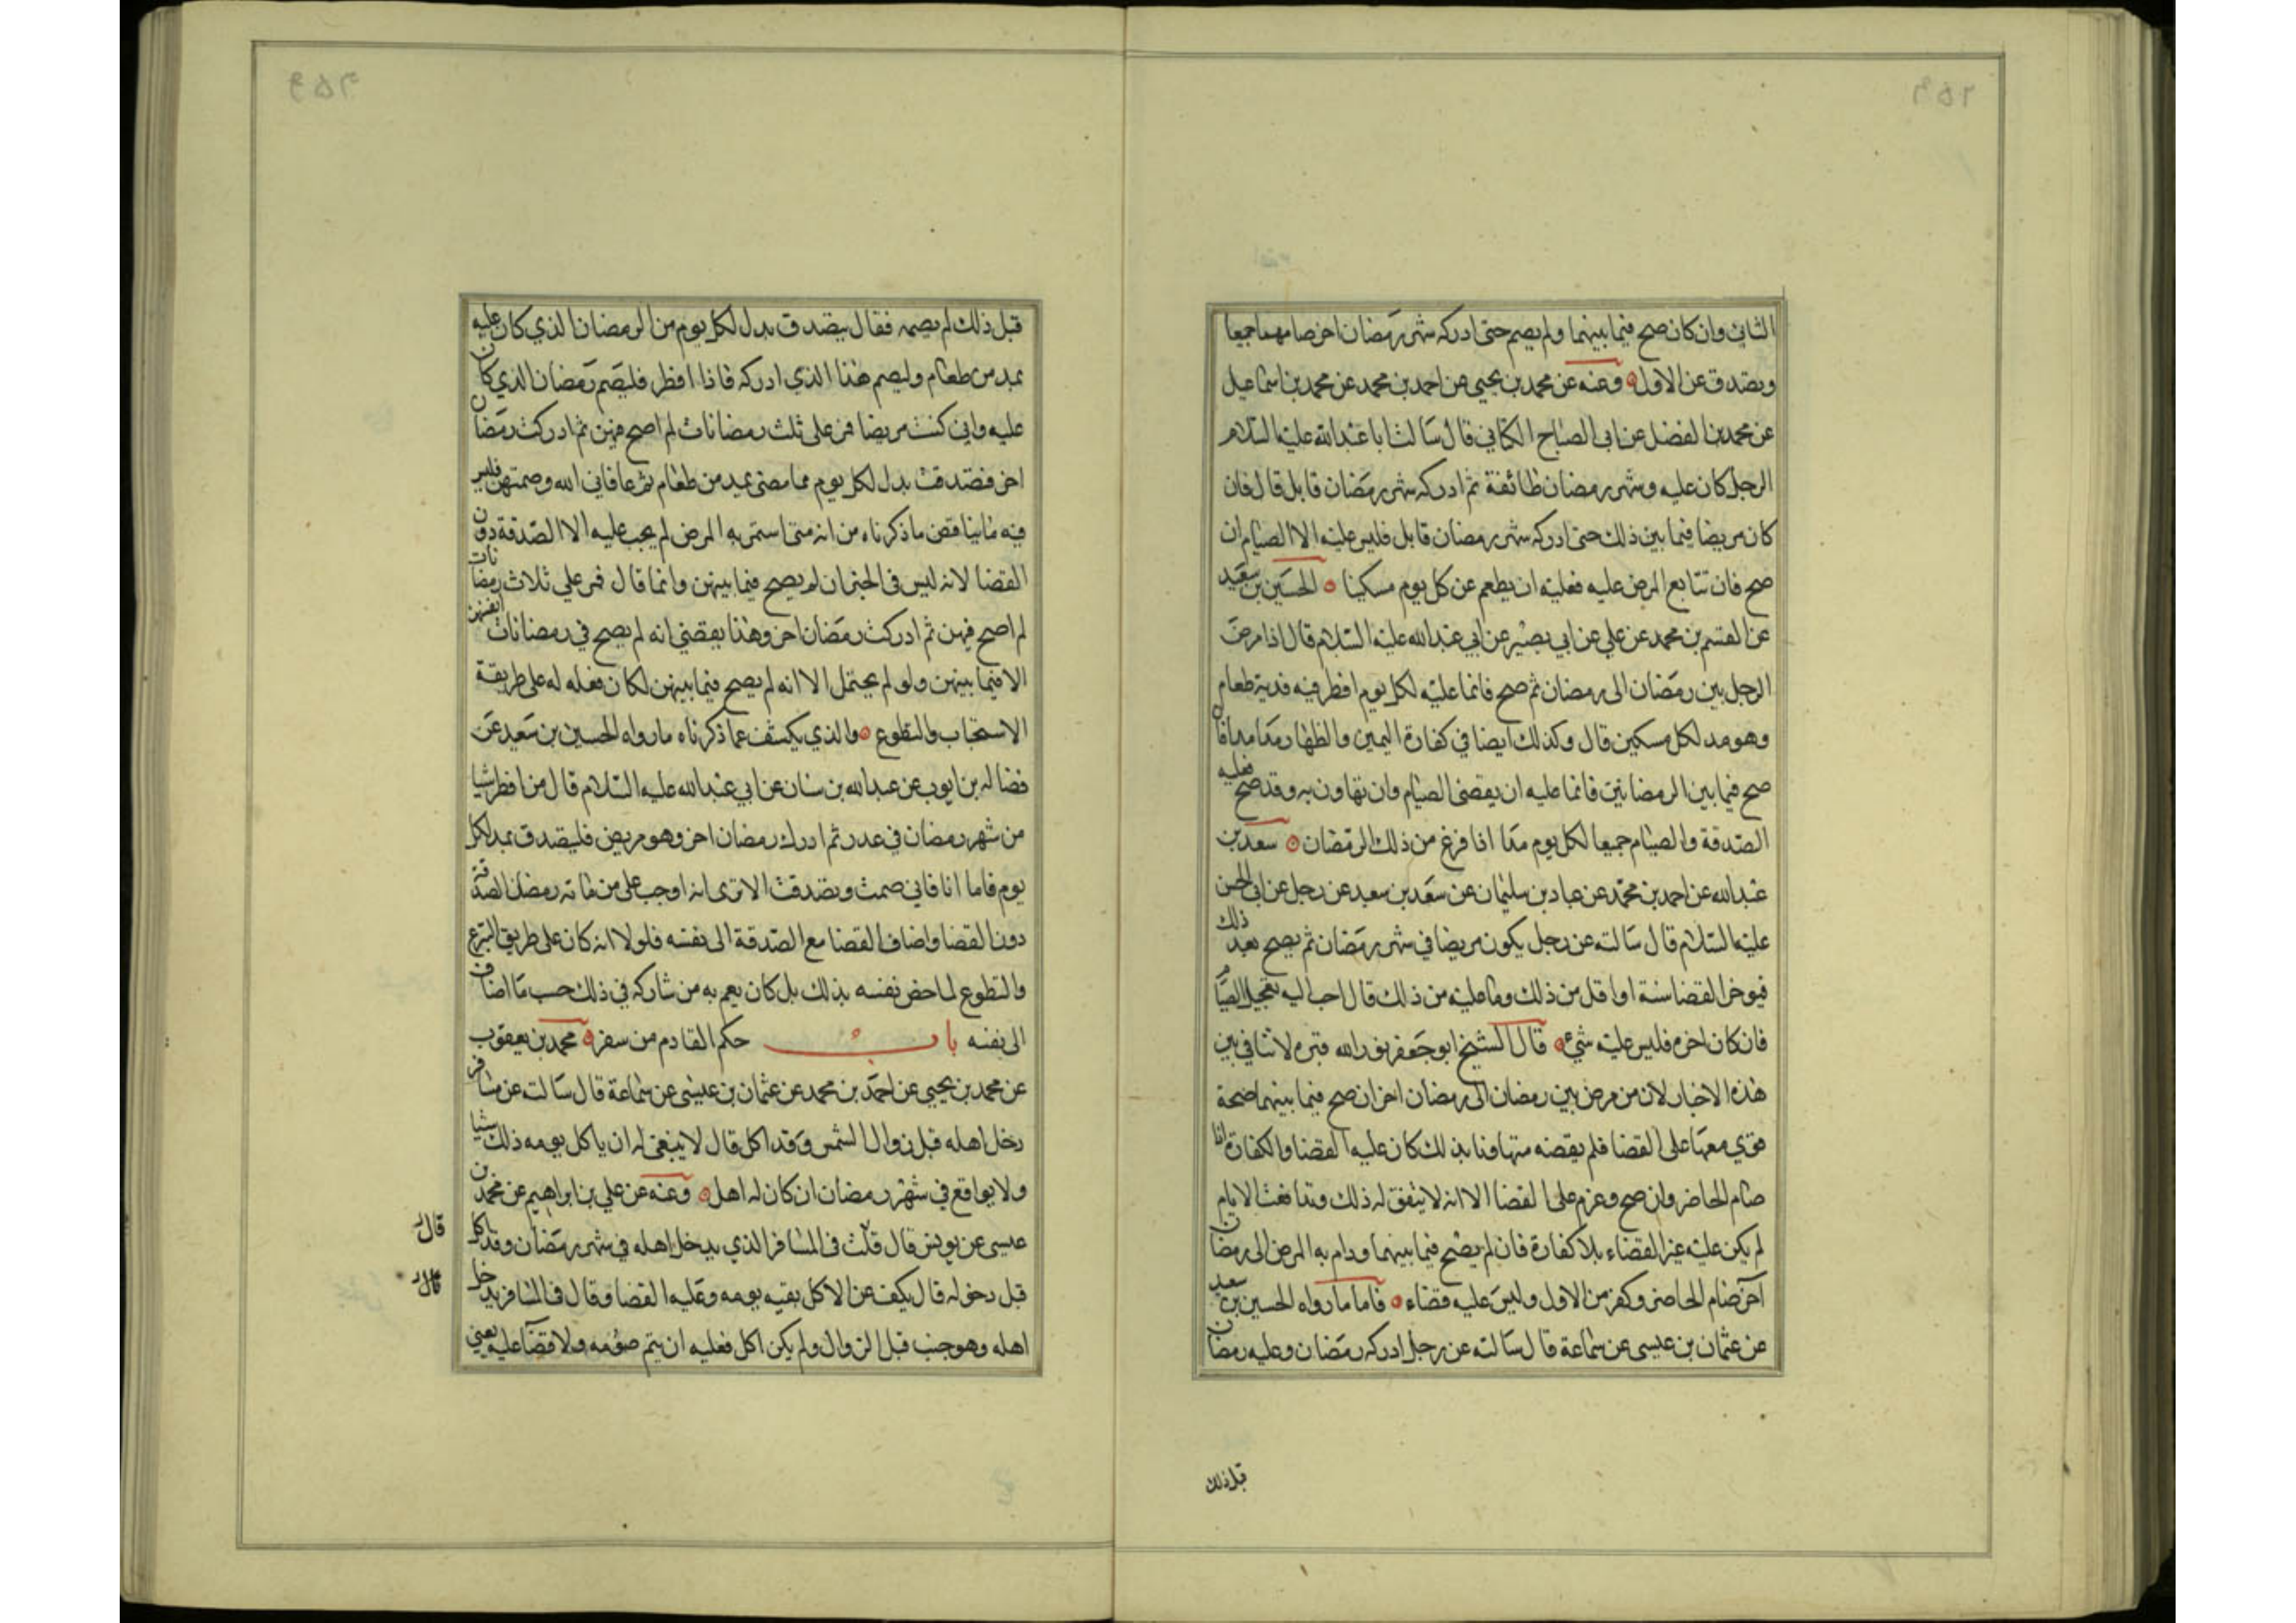 الثاني وان كان صح فيما بينهما ولم يصم حتى ادركه شهر رمضان اخر صامهما جميعا
ويتصدق عن الاول وعنه عن محمد بن يحيى عن احمد بن محمد عن محمد بن اسماعيل
عن محمد بن الفضل عن ابي الصباح الكناني قال سالت ابا عبد الله عليه السلام
الرجل كان عليه وشهر رمضان طائفة ثم ادركه شهر رمضان قابل قال فان
كان مريضا فيما بين ذلك حتى ادركه شهر رمضان قابل فليس عليه الا الصيام ان
صح فان تتابع المرض عليه فعليه ان يطعم عن كل يوم مسكينا الحسين بن سعيد
عن القسم بن محمد عن علي عن ابي بصير عن ابي عبد الله عليه السلام قال اذا مرض
الرجل بين رمضان الى رمضان ثم صح فانما عليه لكل يوم افطر فيه فدية طعام
وهو مد لكل مسكين قال وكذلك ايضا في كفارة اليمين والظهار مدا مدا فان
صح فيما بين الرمضانين فانما عليه ان يقضى الصيام وان تهاون به وقد صح فعليه
الصدقة والصيام جميعا لكل يوم مدا اذا فرغ من ذلك الرمضان سعد بن
عبد الله عن احمد بن محمد عن عباد بن سليمان عن سعد بن سعيد عن رجل عن ابي الحسن
عليه السلام قال سالته عن رجل يكون مريضا في شهر رمضان ثم يصح بعد ذلك
فيوخر القضا سنة او اقل من ذلك وما عليه من ذلك قال احب اليه تعجيل الصيام
فان كان اخره فليس عليه شيء قال الشيخ ابو جعفر نور الله قبره لا تنافي بين
هذه الاخبار لان من مرض بين رمضان الى رمضان اخر ان صح فيما بينهما صحة
قوي معها على القضا فلم يقضه متهاونا بذلك كان عليه القضا والكفارة اذا
صام الحاضر وان صح وعزم على القضا الا انه لا يتفق له ذلك وتدافعت الايام
لم يكن عليه غير القضاء بلا كفارة فان لم يصح فيما بينهما ودام به المرض الى رمضان
آخر صام الحاضر وكفر من الاول وليس عليه قضاء فاما ما رواه الحسين بن سعيد
عن عثمان بن عيسى عن سماعة قال سالته عن رجل ادركه رمضان وعليه رمضان
قبل ذلك
قبل ذلك لم يصمه فقال يتصدق بدل لكل يوم من الرمضان الذي كان عليه
بمد من طعام وليصم هذا الذي ادركه فاذا افطر فليصم رمضان الذي كان
عليه واني كنت مريضا فمر على ثلث رمضانات لم اصح فيهن ثم ادركت رمضان
اخر فتصدقت بدل لكل يوم مما مضى بمد من طعام ثم عافاني الله وصمتهن فليس
فيه ما ينافض ما ذكرناه من انه متى استمر به المرض لم يجب عليه الا الصدقة دون
القضا لانه ليس في الخبر ان لم يصح فيما بينهن وانما قال فمر علي ثلاث رمضانات
لم اصح فيهن ثم ادركت رمضان اخر وهذا يقضي انه لم يصح في رمضانات انفسهن
الا فيما بينهن ولو لم يحتمل الا انه لم يصح فيما بينهن لكان فعله له على طريقة
الاستحباب والتطوع والذي يكشف عما ذكرناه ما رواه الحسين بن سعيد عن
فضاله بن ايوب عن عبد الله بن سنان عن ابي عبد الله عليه السلام قال من افطر شيا
من شهر رمضان في عدر ثم ادرك رمضان اخر وهو مريض فليتصدق بمد لكل
يوم فاما انا فاني صمت وتصدقت الا ترى انه اوجب على من فاته رمضان الصدقة
دون القضا واضاف القضا مع الصدقة الى نفسه فلولا انه كان على طريق التبرع
والتطوع لما خص نفسه بذلك بل كان يعم به من شاركه في ذلك حسب ما اضاف
الى نفسه باب حكم القادم من سفره محمد بن يعقوب
عن محمد بن يحيى عن احمد بن محمد عن عثمان بن عيسى عن سماعة قال سالته عن مسافر
دخل اهله قبل زوال الشمس وقد اكل قال لا ينبغي له ان ياكل يومه ذلك شيا
ولا يواقع في شهر رمضان ان كان له اهل وعنه عن علي بن ابراهيم عن محمد بن
عيسى عن يونس قال قلت في المسافر الذي يدخل اهله في شهر رمضان وقد اكل
قبل دخوله قال يكف عن الاكل بقيه يومه وعليه القضا وقال في المسافر يدخل
اهله وهو جنب قبل الزوال ولم يكن اكل فعليه ان يتم صومه ولا قضآ عليه يعني
قال